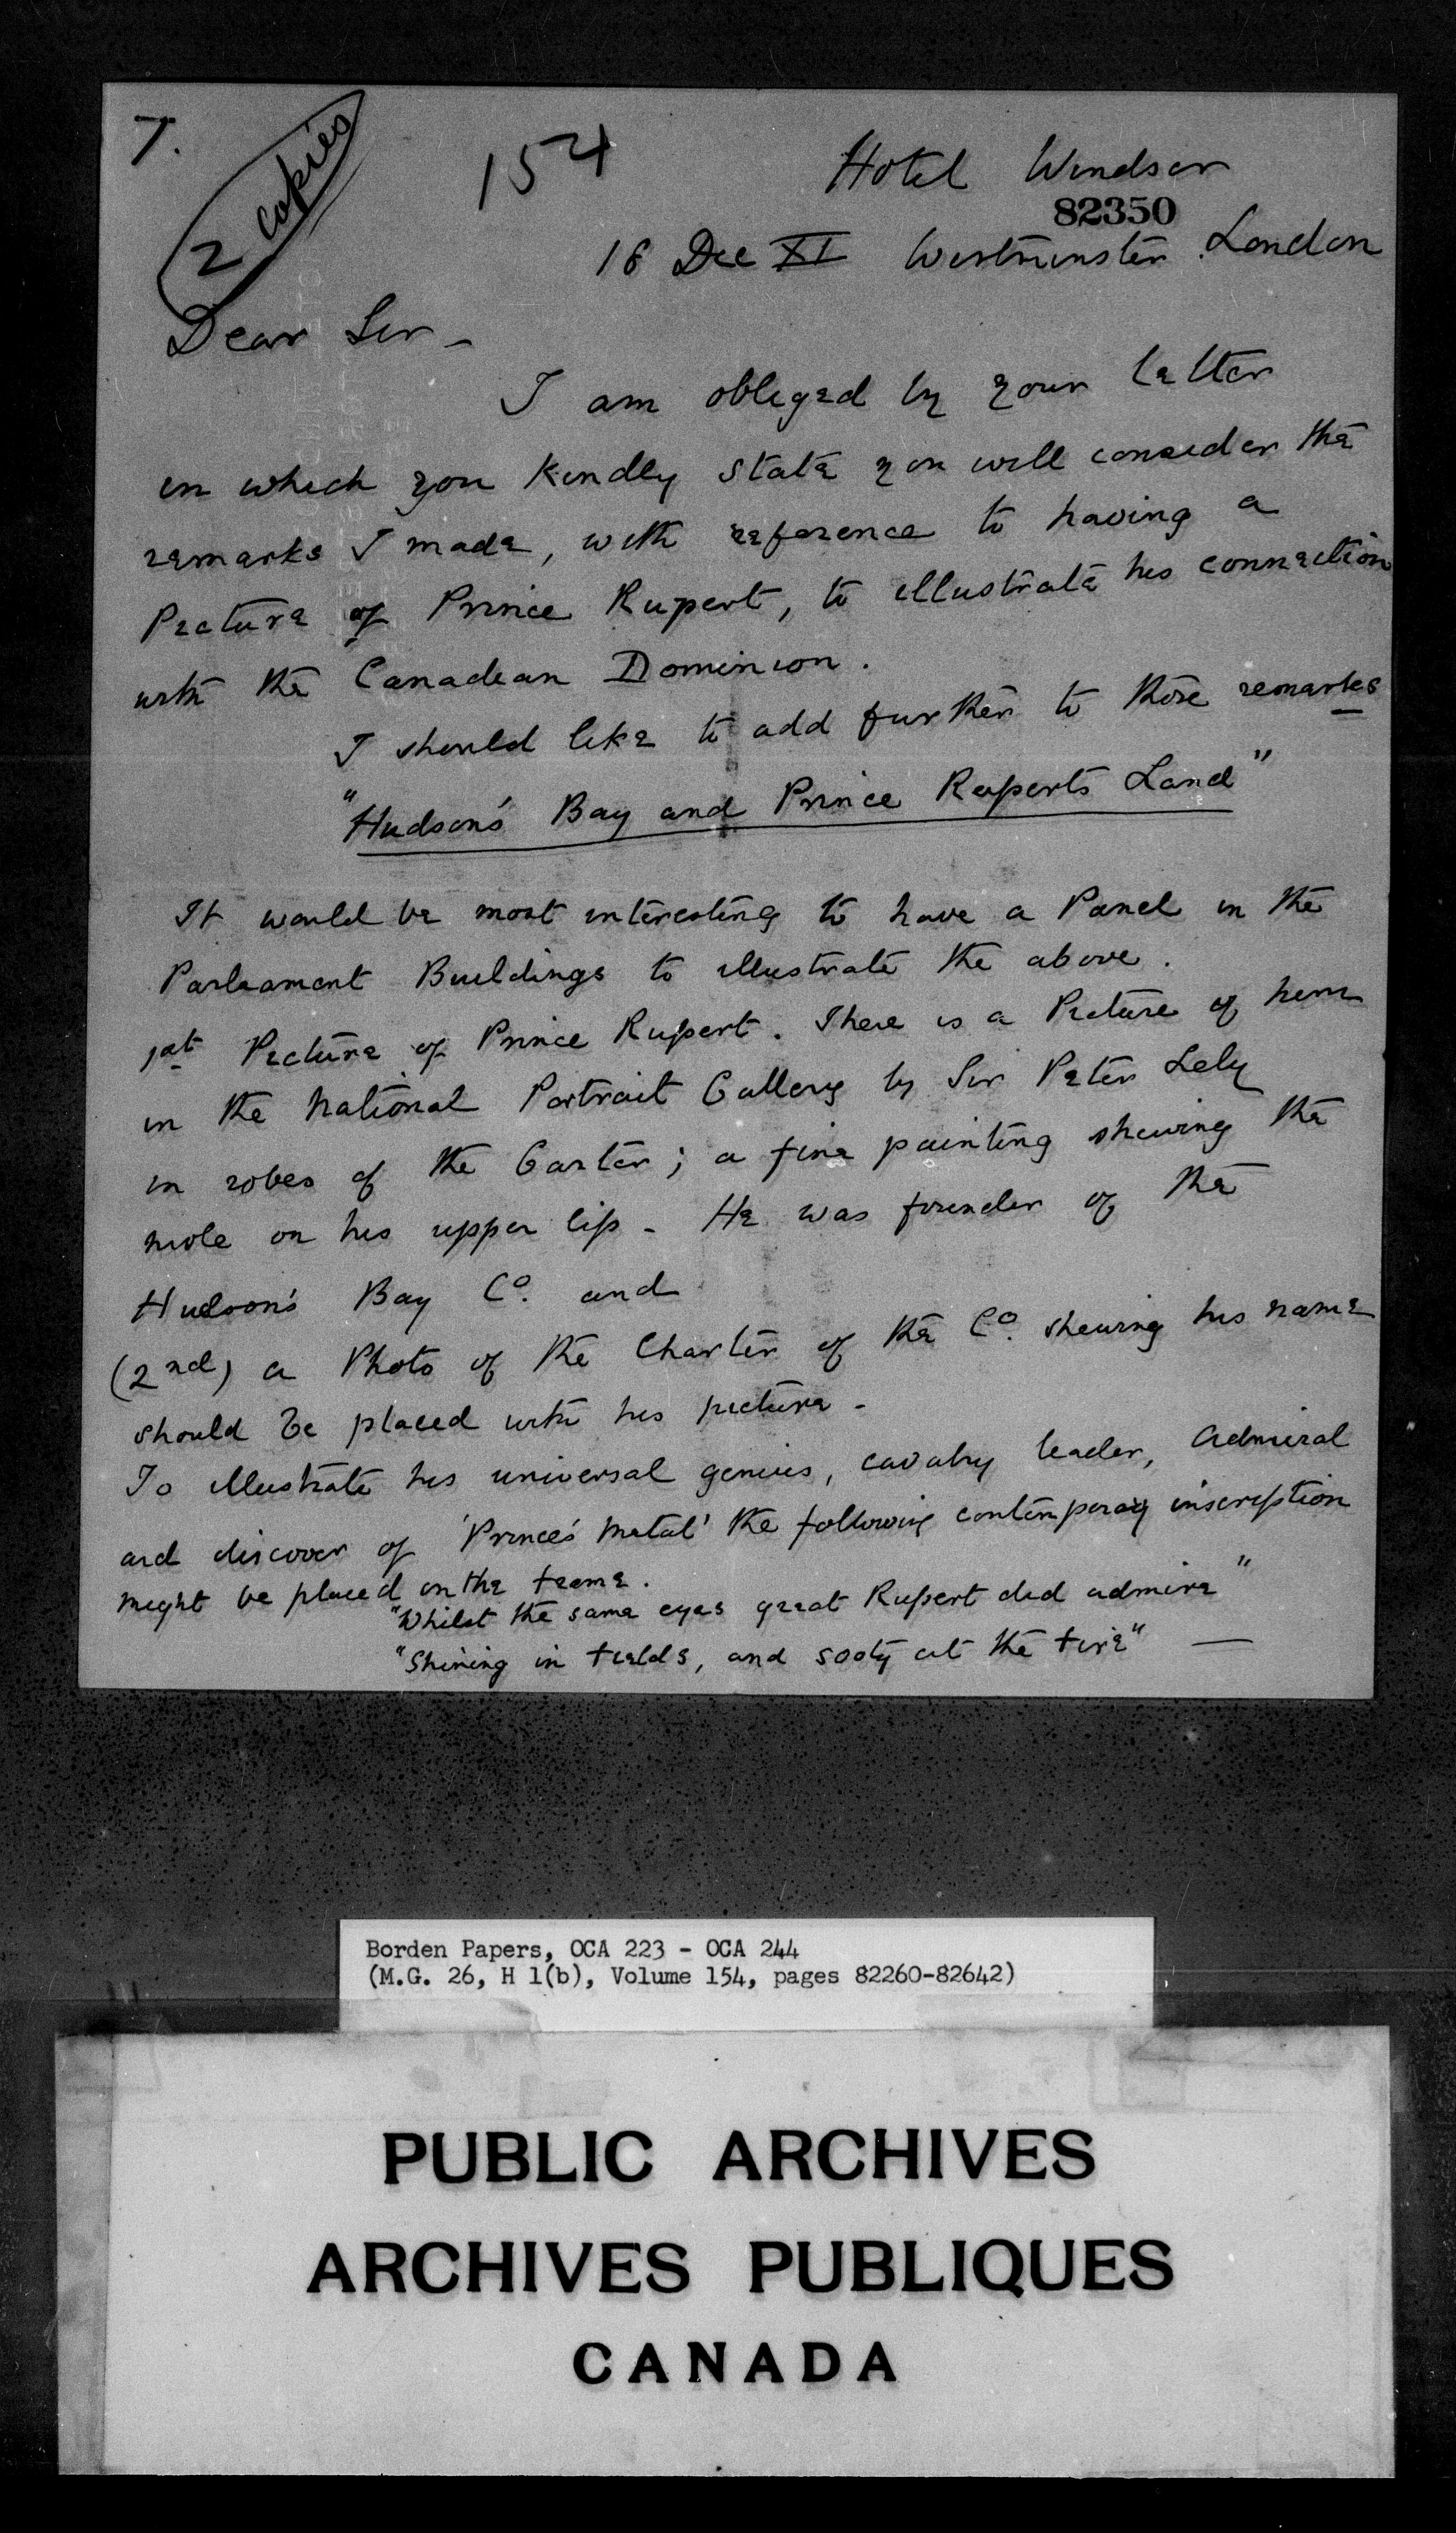 7.
2 copies
154
Hotel Windsor
82350
16 Dec XI Westminster London
Dear Sir -
I am obliged by your letter
in which you kindly state you will consider the
remarks I made, with reference to having a
Picture of Prince Rupert, to illustrate his connection
with the Canadian Dominion.
I should like to add further to those remarks
"Hudson's Bay and Prince Ruperts Land"
It would be most interesting to have a Panel in the
Parliament Buildings to illustrate the above.
1st Picture of Prince Rupert. There is a Picture of him
in the National Portrait Gallery by Sir Peter Lely
in robes of the Garter; a fine painting shewing the
mole on his upper lip - He was founder of the
Hudson's Bay Co. and
(2nd) a Photo of the Charter of the Co. shewing his name
should be placed with his picture -
To illustrate his universal genius, cavalry leader, Admiral
and discover of 'Prince's Metal' the following contemporary inscription
might be placed on the frame.
"Whilst the same eyes great Rupert did admire"
"Shining in fields, and sooty at the fire" —
Borden Papers, OCA 223 - OCA 244
(M.G. 26, H 1(b), Volume 154, pages 82260-82642)
PUBLIC ARCHIVES
ARCHIVES PUBLIQUES
CANADA